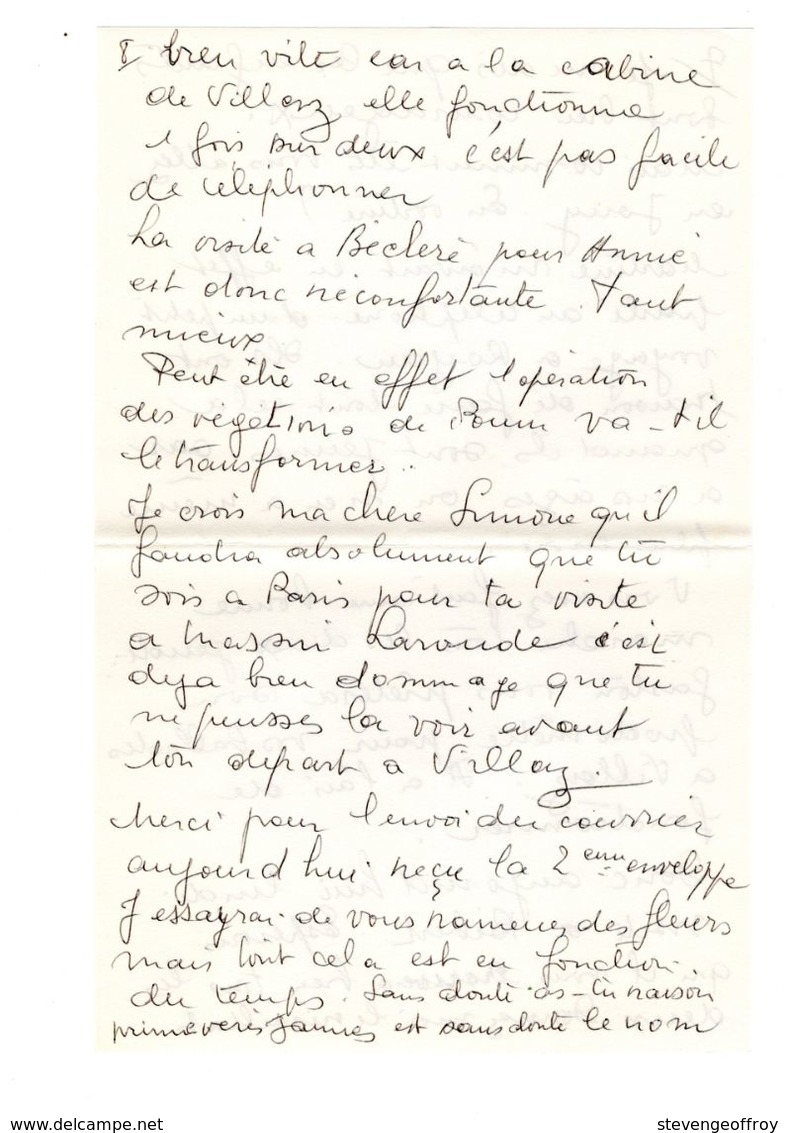 bien vite car a la cabine
de Villaz elle fonctionne
1 fois sur deux c'est pas facile
de telephonner
La visite a Bécleré pour Annie
est donc réconfortante. Tant
mieux
Peut être en effet l'opération
des végétions de Poum va-t-il
le transformer..
Je crois ma chere Simone qu'il
faudra absolument que tu
sois a Paris pour ta visite
a Massin Laroude c'est
deja bien dommage que tu
ne puisses la voir avant
ton depart a Villaz.
Merci pour l'envoi du courrier
aujourd hui reçu la 2eme enveloppe
J'essayrai de vous ramener des fleurs
mais tout cela est en fonction
du temps. Sans doute as-tu raison
primeveres jaunes est sans doute le nom
delcampe.net
stevengeoffroy